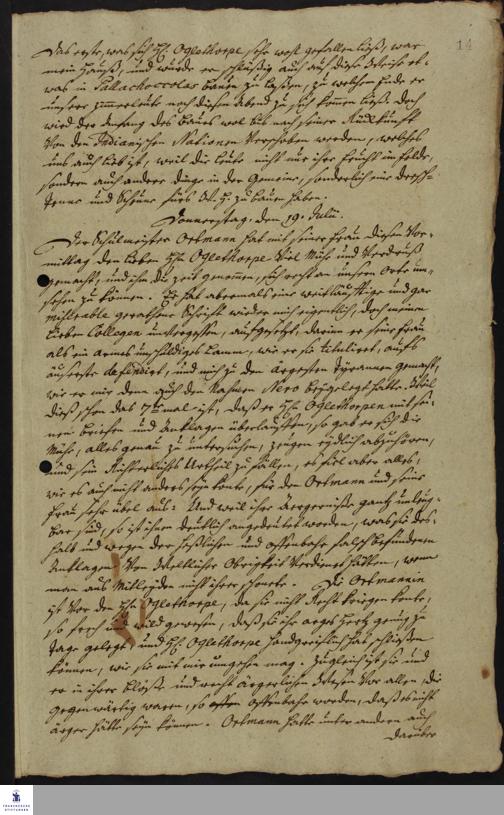 14
Das erste, was sich H. Oglethorpe sehr wohl gefallen ließ, war
mein Hauß, und würde er schlüßig auch auf diese Weise et-
was in Pallachoccolas bauen zu laßen, zu welchem Ende er
unsere Zimmerleute noch diesen Abend zu sich kommen ließ. Doch
wird der Anfang des Baues wol bis nach seiner Rückkunft
von den Indianischen Nationen verschoben werden, welches
uns auch lieb ist, weil die Leute nicht nur ihre Frucht im Felde,
sondern auch andere Dinge in der Gemeine, sonderlich eine Dresch-
Tenne und Scheune fürs W. H. zu bauen haben.
Donnerstag, den 19. Julii.
Der Schulmeister Ortmann hat mit seiner Frau diesen Vor-
mittag dem lieben H. Oglethorpe viel Mühe und Verdruß
gemacht, und ihm die Zeit genommen, sich recht an unserm Orte um-
sehen zu können. Er hat abermals eine weitläuftige und gar
miserable gerathene Schrift wieder mich eigentlich, doch meinen
lieben Collegen unvergessen, aufgesetzt, darinn er seine Frau
als ein armes unschuldiges Lamm, wie er sie tituliret, aufs
äuserste defendirt, und mich zu den ärgesten Tyrannen gemacht,
wie er mir denn auch den Nahmen Nero beygelegt hatte. Weil
dieß schon das 7te mal ist, daß er H. Oglethorpen mit sei-
nen Briefen und Anklagen überlauffen, so gab er sich die
Mühe, alles genau zu untersuchen, Zeugen eydlich abzuhören,
und sein Richterliches Urtheil zu fällen, es fiel aber alles,
wie es auch nicht anders seyn konte, für den Ortmann und seine
Frau sehr übel aus: Und weil ihre Ärgerniße gantz unleug-
bar sind, so ist ihnen deutlich angedeutet worden, was sie des-
halb und wegen der häßlichen und offenbare falsch befundenen
Anklagen von Weltlicher Obrigkeit verdienet hätten, wenn
man aus Mitleyden nicht ihrer schonete. Die Ortmannin
ist vor den H. Oglethorpe, da sie nicht Recht kriegen konte,
so frech und wild gewesen, daß sie ihr arges Hertz genug zu
Tage gelegt, und H. Oglethorpe handgreiflich hat schließen
können, wie sie mit mir umgehen mag. Zugleich ist sie und
er in ihrer Blöße und recht ärgerlichen Wesen vor allen, die
gegenwärtig waren, so offenbahr worden, daß es nicht
ärger hätte seyn können. Ortmann hatte unter andern auch
darüber
FRANCKESCHE
STIFTUNGEN